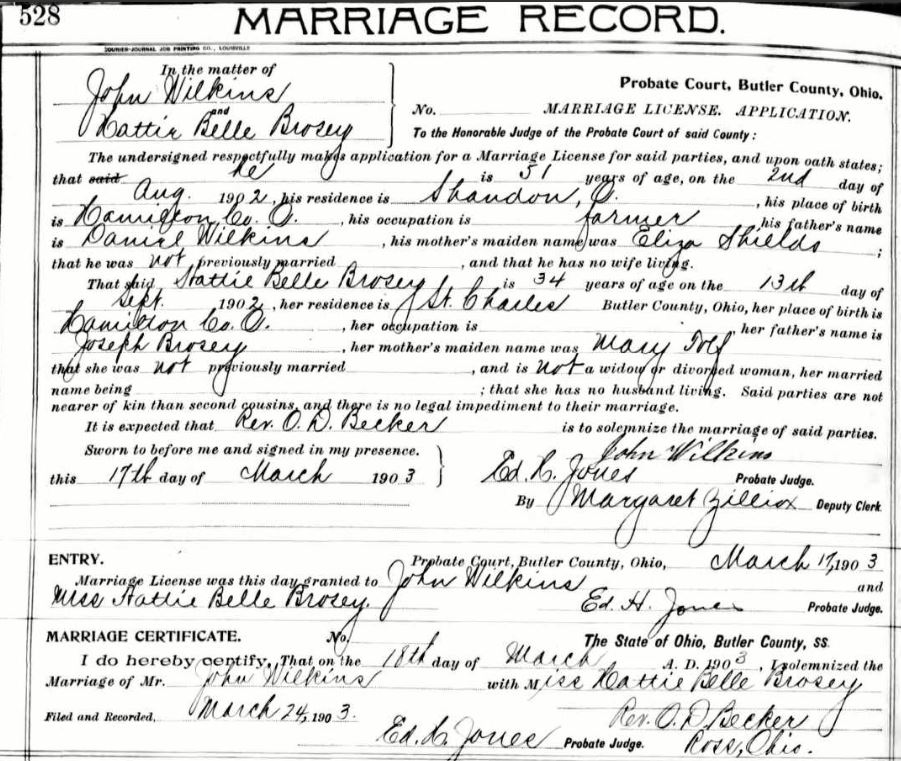 528
MARRIAGE RECORD.
COURIER-JOURNAL JOB PRINTING CO., LOUISVILLE
In the matter of
John Wilkins
and
Hattie Belle Brosey
Probate Court, Butler County, Ohio.
No. MARRIAGE LICENSE. APPLICATION.
To the Honorable Judge of the Probate Court of said County:
The undersigned respectfully makes application for a Marriage License for said parties, and upon oath states;
that said he is 51 years of age, on the 2nd day of
Aug. 1902, his residence is Shandon, O. , his place of birth
is Hamilton Co. O. , his occupation is farmer his father's name
is Daniel Wilkins , his mother's maiden name was Eliza Shields ;
that he was not previously married , and that he has no wife living.
That said Hattie Belle Brosey is 34 years of age on the 13th day of
Sept. 1902, her residence is St. Charles Butler County, Ohio, her place of birth is
Hamilton Co. O. , her occupation is her father's name is
Joseph Brosey , her mother's maiden name was Mary
that she was not previously married , and is not a widow or divorced woman, her married
name being ; that she has no husband living. Said parties are not
nearer of kin than second cousins, and there is no legal impediment to their marriage.
It is expected that Rev. O. D. Becker is to solemnize the marriage of said parties.
Sworn to before me and signed in my presence. John Wilkins
this 17th day of March 1903 Ed. H. Jones Probate Judge.
By Margaret Zilliox Deputy Clerk
ENTRY. Probate Court, Butler County, Ohio, March 17, 1903
Marriage License was this day granted to John Wilkins and
Miss Hattie Belle Brosey. Ed. H. Jones Probate Judge.
MARRIAGE CERTIFICATE. No. The State of Ohio, Butler County, SS.
I do hereby certify, That on the 18th day of March A. D. 1903, I solemnized the
Marriage of Mr. John Wilkins with Miss Hattie Belle Brosey
Filed and Recorded, March 24, 1903. Rev. O. D. Becker
Ed. H. Jones Probate Judge. Ross, Ohio.